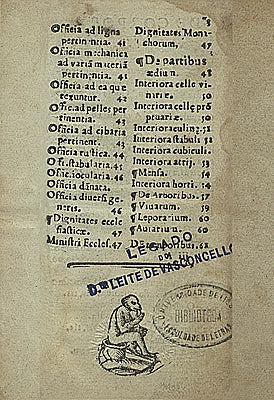 Officia ad ligna
pertinentia. 41
Officia mechanica
ad variā materiā
pertinentia. 41
Officia ad ea quæ
teguntur. 42
Offic. ad pelles per
tinentia. 43
Officia ad cibaria
pertinent. 43
Officia rustica. 44
Offi. stabularia. 45
Offic. iocularia. 46
Officia dānata. 46
Officia diuersi ge-
neris. 46
¶Dignitates eccle
siasticæ. 47
Ministri Eccles. 47
Dignitates Mona
chorum. 47
¶De partibus
ædium. 48
Interiora cellę vi-
nariæ. 50
Interiora cellę pro
ptuariæ. 50
Interiora culinę. 52
Interiora stabuli.
Interiora cubiculi.
Interiora atrij. 53
¶Mensa. 54
Interiora horti. 54
¶De Arboribus. 57
¶Viuarium. 59
¶Leporarium. 60
¶Auiarium. 60
LEGADO
DO
D.or LEITE DE VASCONCELLOS
BIBLIOTECA